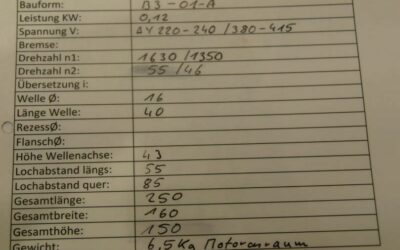 Bauform: B3-01-A
Leistung KW: 0,12
Spannung V: ΔY 220-240 /380-415
Bremse:
Drehzahl n1: 1630/1350
Drehzahl n2: 55/46
Übersetzung i:
Welle Ø: 16
Länge Welle: 40
RezessØ:
FlanschØ:
Höhe Wellenachse: 43
Lochabstand längs: 55
Lochabstand quer: 85
Gesamtlänge: 250
Gesamtbreite: 160
Gesamthöhe: 150
Gewicht: 6,5Kg Motorenraum